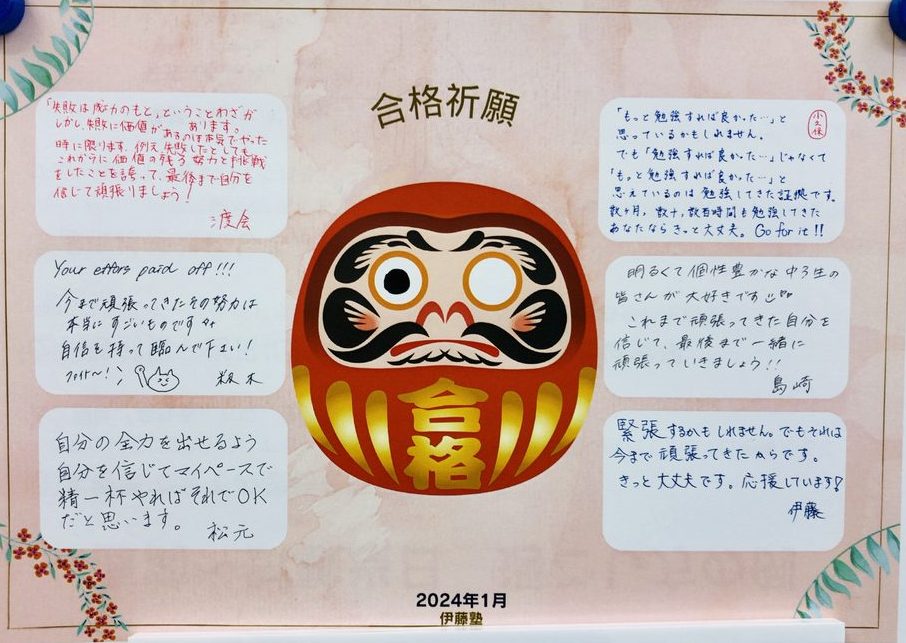 合格祈願
「失敗は成功のもと」ということわざが
あります。
しかし、失敗に価値があるのは本気でやった
時に限ります。例え失敗したとしても
これからに価値の残る努力と挑戦
をしたことを誇って、最後まで自分を
信じて頑張りましょう！
渡会
Your effors paid off!!!
今まで頑張ってきたその努力は
本当にすごいものです
自信を持って臨んで下さい！
ファイト～！
木
自分の全力を出せるよう
自分を信じてマイペースで
精一杯やればそれでOK
だと思います。
松元
「もっと勉強すれば良かった…」と
思っているかもしれません。
でも「勉強すれば良かった…」じゃなくて
「もっと勉強すれば良かった…」と
思えているのは勉強してきた証拠です。
数ヶ月，数十，数百時間も勉強してきた
あなたならきっと大丈夫。Go for it!!
小久保
明るくて個性豊かな中3生の
皆さんが大好きです
これまで頑張ってきた自分を
信じて、最後まで一緒に
頑張っていきましょう！！
島崎
緊張するかもしれません。でもそれは
今まで頑張ってきたからです。
きっと大丈夫です。応援しています！
伊藤
合格
2024年1月
伊藤塾